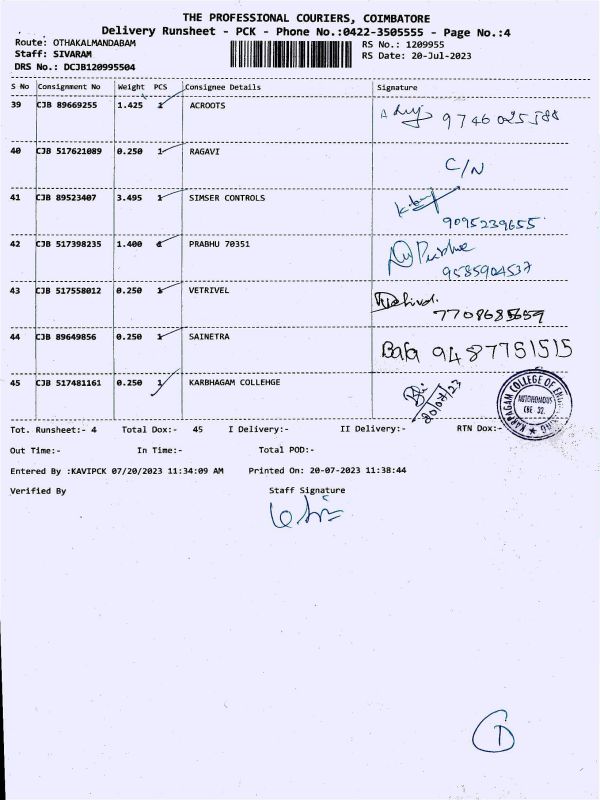 THE PROFESSIONAL COURIERS, COIMBATORE
Delivery Runsheet - PCK - Phone No.:0422-3505555 - Page No.:4
Route: OTHAKALMANDABAM RS No.: 1209955
Staff: SIVARAM RS Date: 20-Jul-2023
DRS No.: DCJB120995504
S No Consignment No Weight PCS Consignee Details Signature
39 CJB 89669255 1.425 1 ACROOTS
9746025588
40 CJB 517621089 0.250 1 RAGAVI
C/N
41 CJB 89523407 3.495 1 SIMSER CONTROLS
9095239655
42 CJB 517398235 1.400 1 PRABHU 70351
9585904537
43 CJB 517558012 0.250 1 VETRIVEL
7708685659
44 CJB 89649856 0.250 1 SAINETRA
Bala 9487751515
45 CJB 517481161 0.250 1 KARBHAGAM COLLEHGE
20/07/23
KARPAGAM COLLEGE OF
AUTONOMOUS
CBE - 32.
Tot. Runsheet:- 4 Total Dox:- 45 I Delivery:- II Delivery:- RTN Dox:-
Out Time:- In Time:- Total POD:-
Entered By :KAVIPCK 07/20/2023 11:34:09 AM Printed On: 20-07-2023 11:38:44
Verified By Staff Signature
1